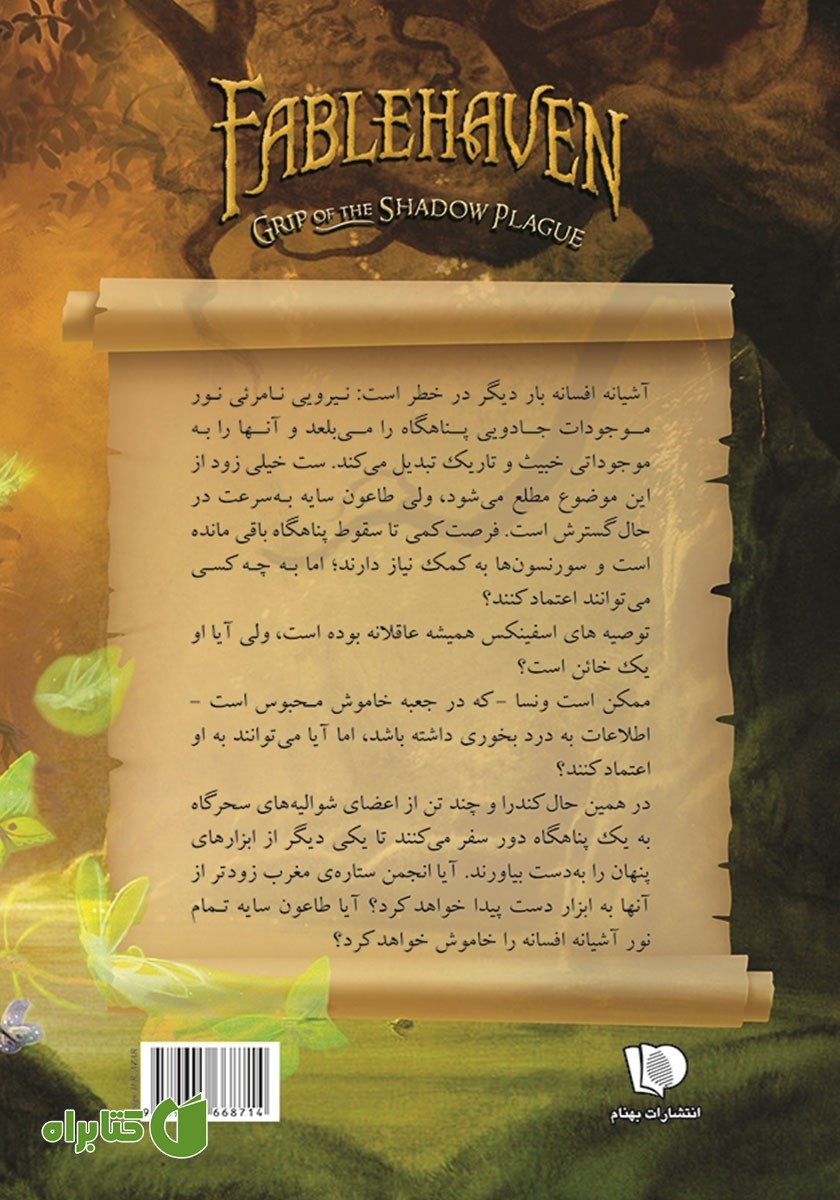 FABLEHAVEN
GRIP OF THE SHADOW PLAGUE
آشیانه افسانه بار دیگر در خطر است: نیرویی نامرئی نور
موجودات جادویی پناهگاه را می‌بلعد و آنها را به
موجوداتی خبیث و تاریک تبدیل می‌کند. ست خیلی زود از
این موضوع مطلع می‌شود، ولی طاعون سایه به‌سرعت در
حال گسترش است. فرصت کمی تا سقوط پناهگاه باقی مانده
است و سورنسون‌ها به کمک نیاز دارند؛ اما به چه کسی
می‌توانند اعتماد کنند؟
توصیه های اسفینکس همیشه عاقلانه بوده است، ولی آیا او
یک خائن است؟
ممکن است ونسا –که در جعبه خاموش محبوس است –
اطلاعات به درد بخوری داشته باشد، اما آیا می‌توانند به او
اعتماد کنند؟
در همین حال کندرا و چند تن از اعضای شوالیه‌های سحرگاه
به یک پناهگاه دور سفر می‌کنند تا یکی دیگر از ابزارهای
پنهان را به‌دست بیاورند. آیا انجمن ستاره‌ی مغرب زودتر از
آنها به ابزار دست پیدا خواهد کرد؟ آیا طاعون سایه تمام
نور آشیانه افسانه را خاموش خواهد کرد؟
انتشارات بهنام
668714
کتابراه